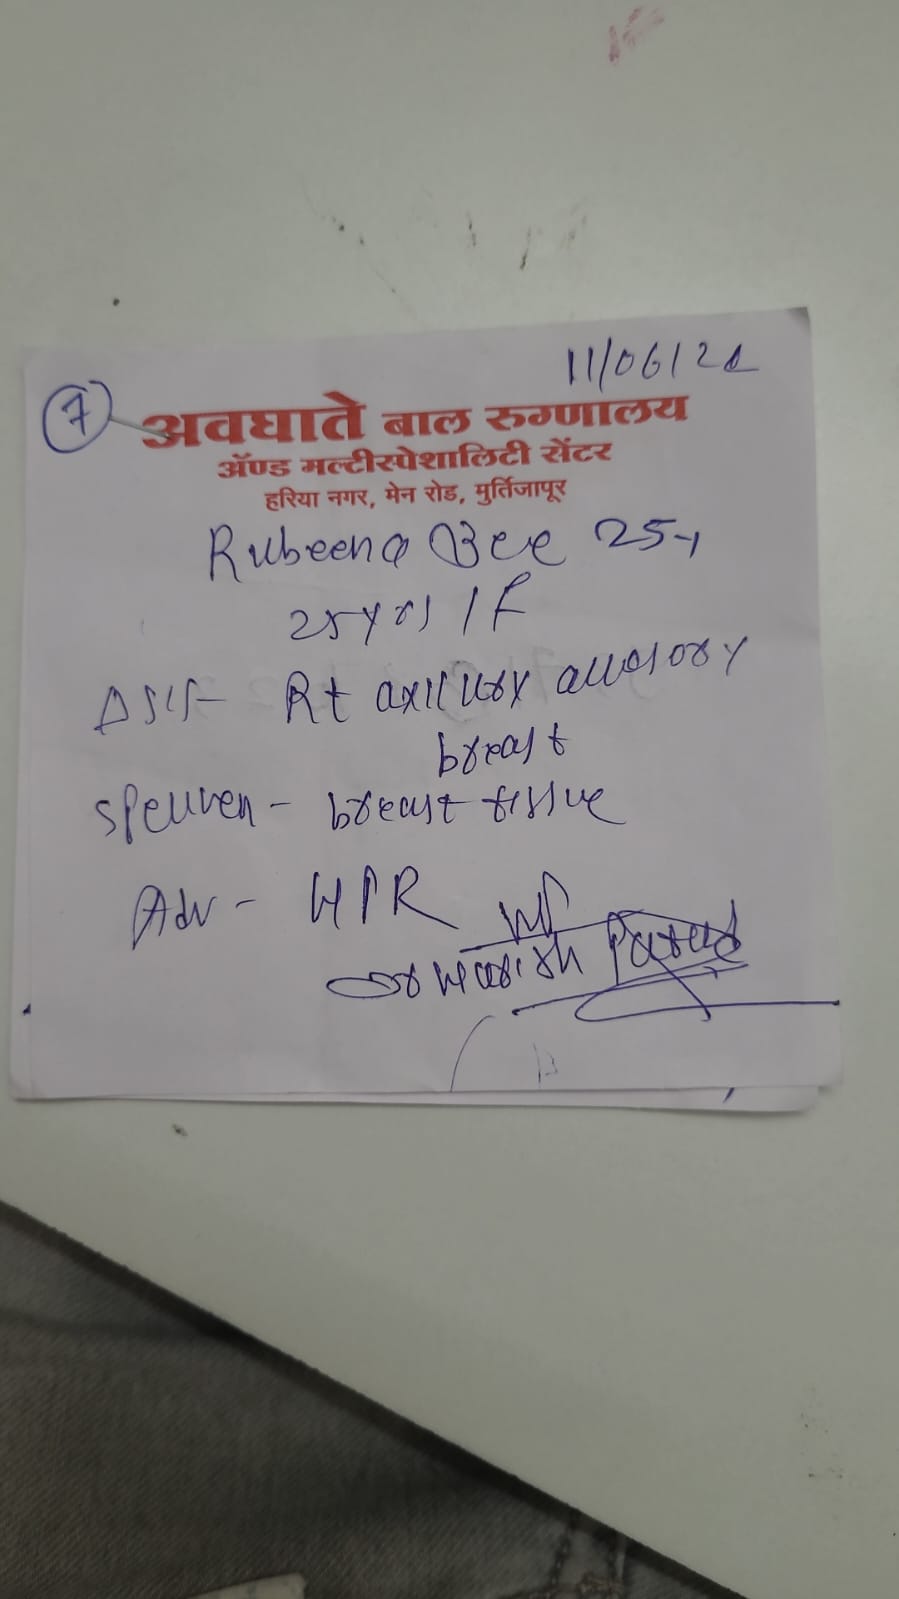 11/06/21
7
अवघाते बाल रुग्णालय
ॲण्ड मल्टीस्पेशालिटी सेंटर
हरिया नगर, मेन रोड, मुर्तिजापूर
Rubeena Bee 25
25yrs / F
Rt axillary accessory
breast
specimen - breast tissue
Adv - HPR
Dr Harish